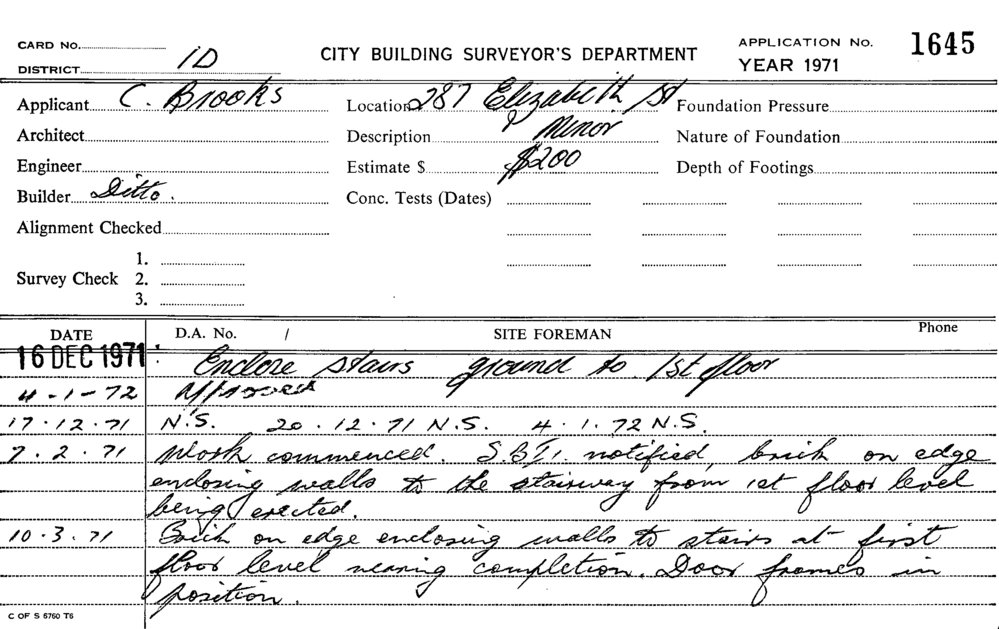 CARD No.
DISTRICT 1D
CITY BUILDING SURVEYOR'S DEPARTMENT
APPLICATION No. 1645
YEAR 1971
Applicant C. Brooks
Location 287 Elizabeth St
Foundation Pressure
Architect
Description Minor
Nature of Foundation
Engineer
Estimate $ $200
Depth of Footings
Builder Ditto.
Conc. Tests (Dates)
Alignment Checked
Survey Check 1.
2.
3.
DATE D.A. No. / SITE FOREMAN Phone
16 DEC 1971 Enclose stairs ground to 1st floor
4-1-72 Approved
17.12.71 N.S. 20.12.71 N.S. 4.1.72 N.S.
7.2.71 Work commenced. notified, brick on edge
enclosing walls to the stairway from 1st floor level
being erected.
10.3.71 Brick on edge enclosing walls to stairs at first
floor level nearing completion. Door frames in
position.
C OF S 6760 T6